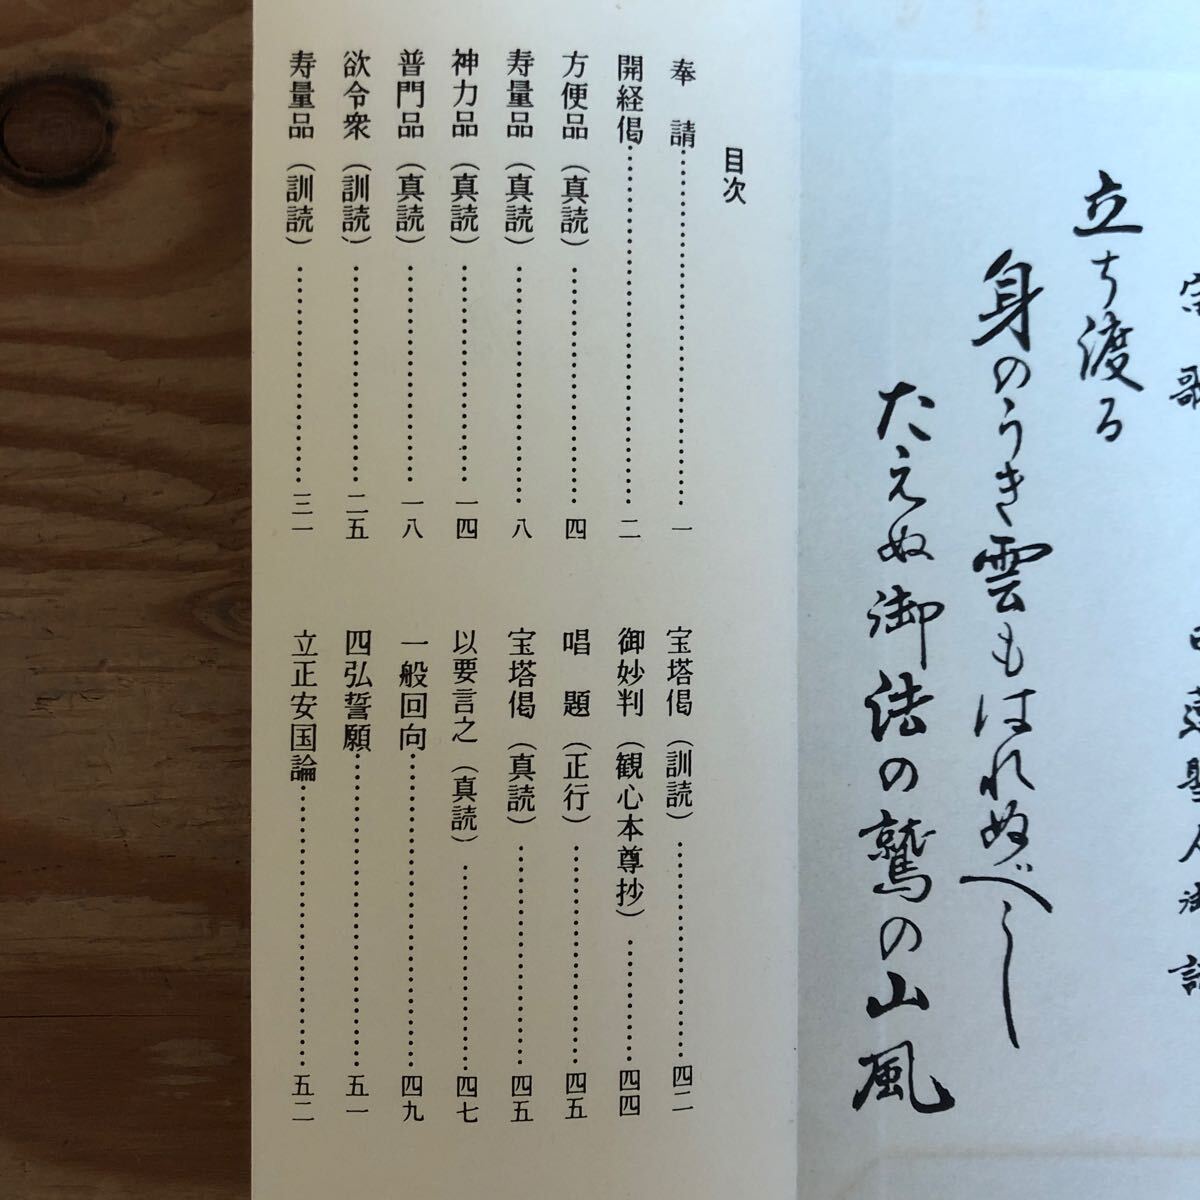 宗歌
日蓮聖人御詠
立ち渡る
身のうき雲もはれぬべし
たえぬ御法の鷲の山風
目次
奉請……一
開経偈……二
方便品（真読）……四
寿量品（真読）……八
神力品（真読）……一四
普門品（真読）……一八
欲令衆（訓読）……二五
寿量品（訓読）……三一
宝塔偈（訓読）……四二
御妙判（観心本尊抄）……四四
唱題（正行）……四五
宝塔偈（真読）……四五
以要言之（真読）……四七
一般回向……四九
四弘誓願……五一
立正安国論……五二